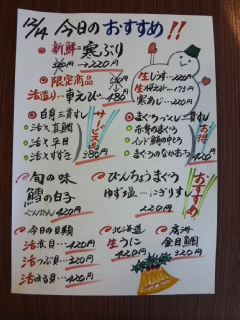 12/14 今日のおすすめ!!
新鮮 寒ぶり
→220円
限定商品
活造り 車えび 486
生しらす 220円
生 220円
寒あじ 220円
白身三貫すし
活〆真鯛
活〆平目
活〆すずき
サービス品
380円
まぐろづくし三貫すし
赤身のまぐろ
インド鮪の中とろ
まぐろのなかおち
お得
420円
旬の味
鱈の白子
ぐんかん 220円
びんちょうまぐろ
ゆず塩 にぎりすし
220円
おすすめ
今日の貝類
活赤貝 420円
活つぶ貝 320円
活みる貝 420円
北海道
生うに
420円
金目鯛
320円